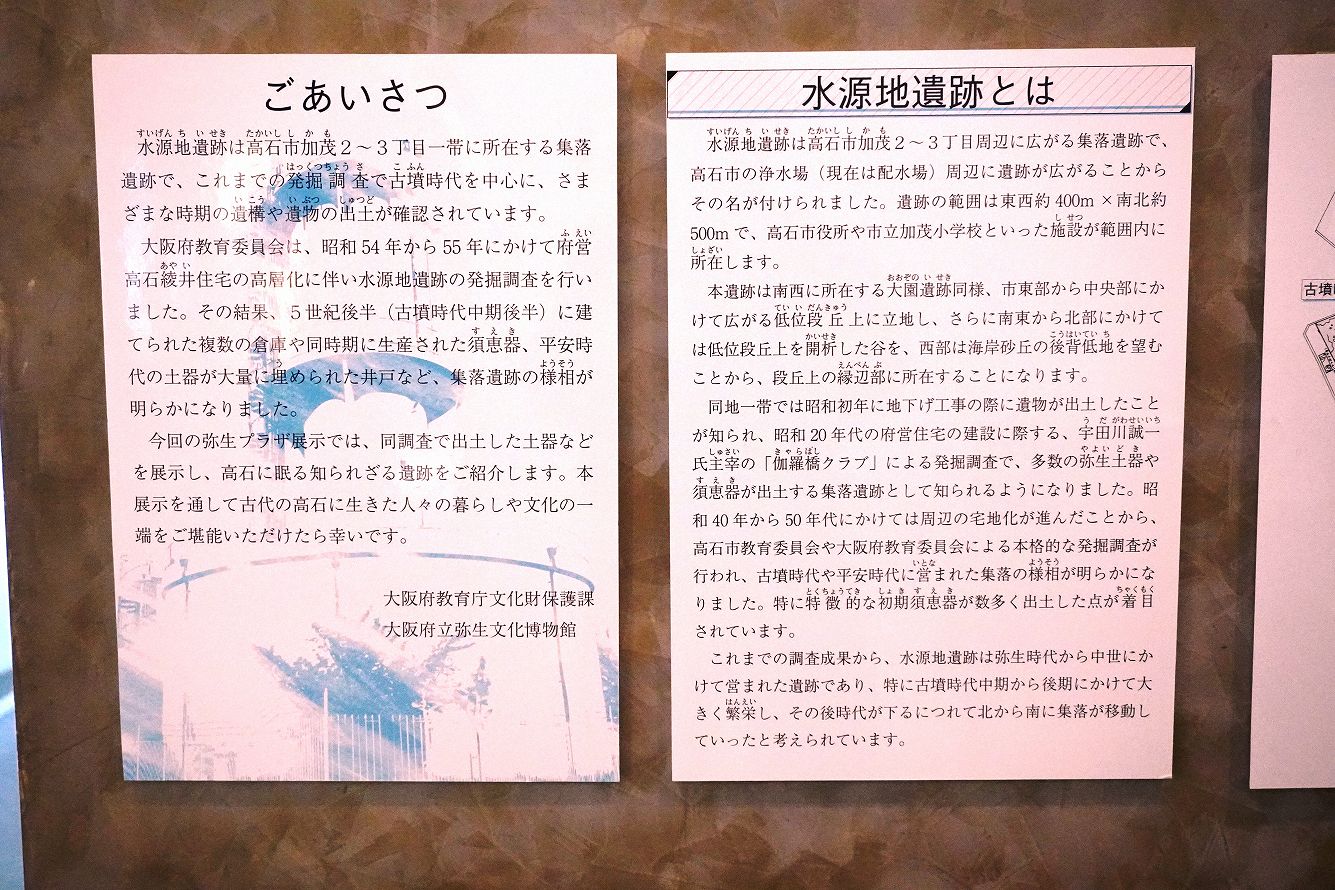 ごあいさつ
水源地遺跡は高石市加茂２～３丁目一帯に所在する集落
遺跡で、これまでの発掘調査で古墳時代を中心に、さま
ざまな時期の遺構や遺物の出土が確認されています。
大阪府教育委員会は、昭和54年から55年にかけて府営
高石綾井住宅の高層化に伴い水源地遺跡の発掘調査を行い
ました。その結果、５世紀後半（古墳時代中期後半）に建
てられた複数の倉庫や同時期に生産された須恵器、平安時
代の土器が大量に埋められた井戸など、集落遺跡の様相が
明らかになりました。
今回の弥生プラザ展示では、同調査で出土した土器など
を展示し、高石に眠る知られざる遺跡をご紹介します。本
展示を通して古代の高石に生きた人々の暮らしや文化の一
端をご堪能いただけたら幸いです。
大阪府教育庁文化財保護課
大阪府立弥生文化博物館
水源地遺跡とは
水源地遺跡は高石市加茂２～３丁目周辺に広がる集落遺跡で、
高石市の浄水場（現在は配水場）周辺に遺跡が広がることから
その名が付けられました。遺跡の範囲は東西約400m×南北約
500mで、高石市役所や市立加茂小学校といった施設が範囲内に
所在します。
本遺跡は南西に所在する大園遺跡同様、市東部から中央部にか
けて広がる低位段丘上に立地し、さらに南東から北部にかけて
は低位段丘上を開析した谷を、西部は海岸砂丘の後背低地を望む
ことから、段丘上の縁辺部に所在することになります。
同地一帯では昭和初年に地下げ工事の際に遺物が出土したこと
が知られ、昭和20年代の府営住宅の建設に際する、宇田川誠一
氏主宰の「伽羅橋クラブ」による発掘調査で、多数の弥生土器や
須恵器が出土する集落遺跡として知られるようになりました。昭
和40年から50年代にかけては周辺の宅地化が進んだことから、
高石市教育委員会や大阪府教育委員会による本格的な発掘調査が
行われ、古墳時代や平安時代に営まれた集落の様相が明らかにな
りました。特に特徴的な初期須恵器が数多く出土した点が着目
されています。
これまでの調査成果から、水源地遺跡は弥生時代から中世にか
けて営まれた遺跡であり、特に古墳時代中期から後期にかけて大
きく繁栄し、その後時代が下るにつれて北から南に集落が移動し
ていったと考えられています。
古墳